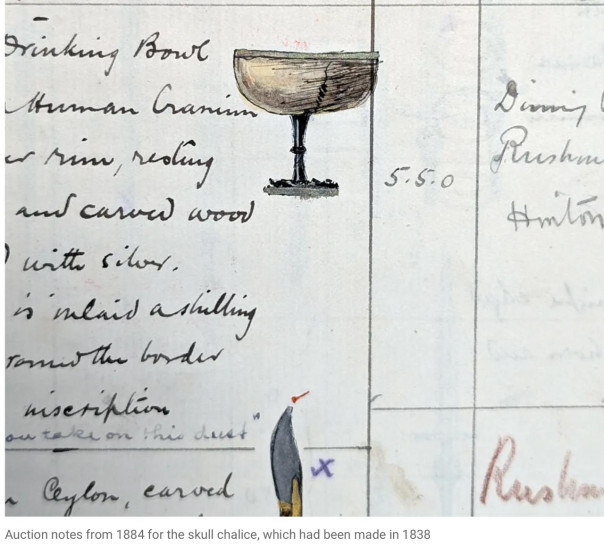 Drinking Bowl
Human Cranium
rim, resting
and carved wood
with silver.
is inlaid a shilling
round the border
inscription
you take on this dust"
Ceylon, carved
5.5.0
Dining
Rushm
Hinton
x
Rushm
Auction notes from 1884 for the skull chalice, which had been made in 1838